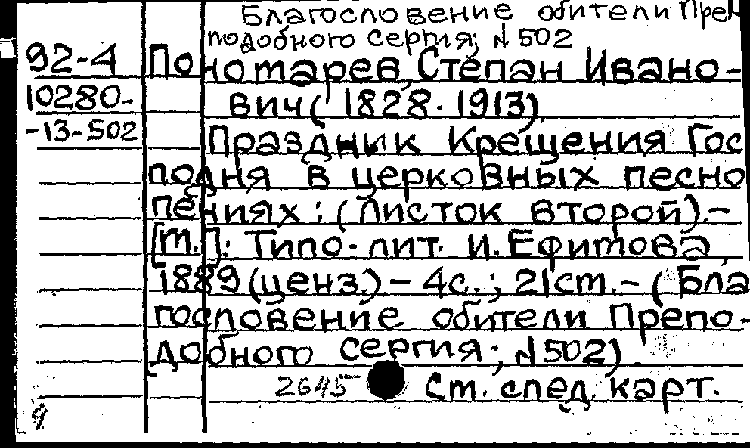 Благословение обители Преп
подобного Сергия; N 502
92-4 Пономарев, Степан Ивано-
10280- вич (1828-1913)
-13-502 Праздник Крещения Гос
подня в церковных песно
пениях: (Листок второй).-
[М.]: Типо-лит. И. Ефимова,
1889 (ценз.) - 4с.; 21см. - (Бла
гословение обители Препо-
добного Сергия; N 502)
2645 См. след. карт.
9